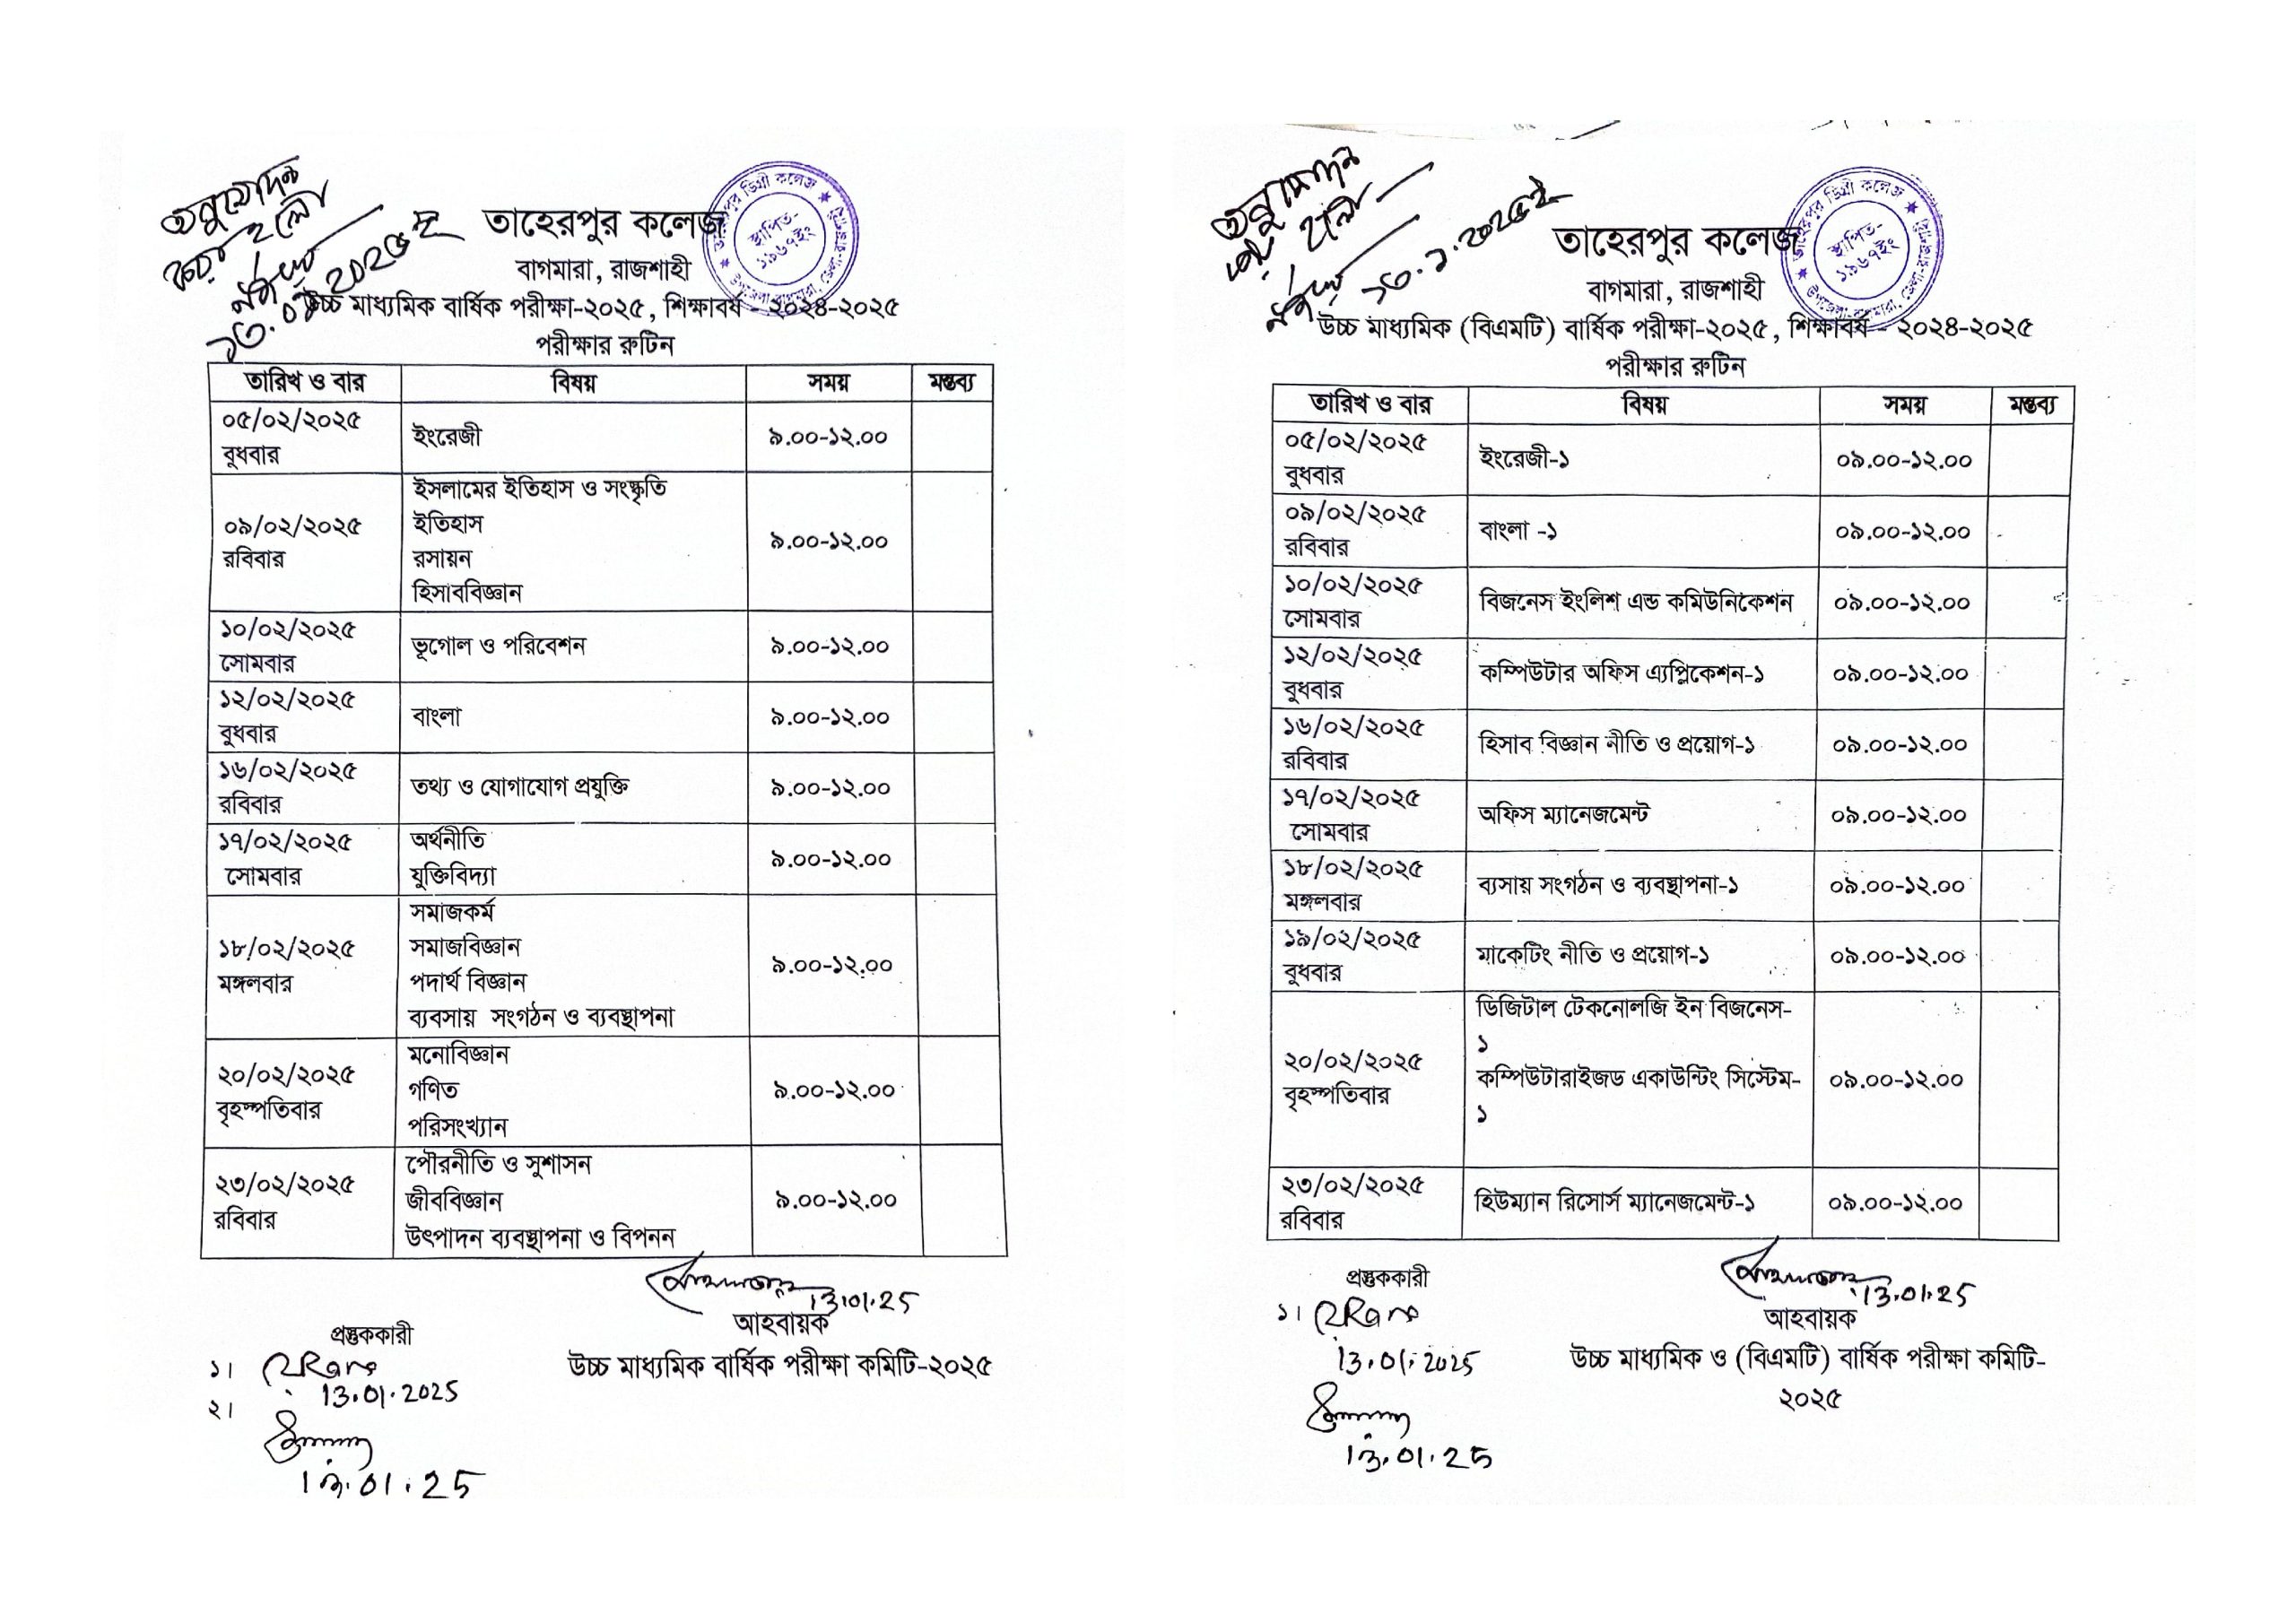 অনুমোদন
করা হলো
তাহেরপুর কলেজ
বাগমারা, রাজশাহী
উচ্চ মাধ্যমিক বার্ষিক পরীক্ষা-২০২৫, শিক্ষাবর্ষ - ২০২৪-২০২৫
পরীক্ষার রুটিন
তারিখ ও বার বিষয় সময় মন্তব্য
০৫/০২/২০২৫
বুধবার
ইংরেজী
৯.০০-১২.০০
০৯/০২/২০২৫
রবিবার
ইসলামের ইতিহাস ও সংস্কৃতি
ইতিহাস
রসায়ন
হিসাববিজ্ঞান
৯.০০-১২.০০
১০/০২/২০২৫
সোমবার
ভূগোল ও পরিবেশন
৯.০০-১২.০০
১২/০২/২০২৫
বুধবার
বাংলা
৯.০০-১২.০০
১৬/০২/২০২৫
রবিবার
তথ্য ও যোগাযোগ প্রযুক্তি
৯.০০-১২.০০
১৭/০২/২০২৫
সোমবার
অর্থনীতি
যুক্তিবিদ্যা
৯.০০-১২.০০
১৮/০২/২০২৫
মঙ্গলবার
সমাজকর্ম
সমাজবিজ্ঞান
পদার্থ বিজ্ঞান
ব্যবসায় সংগঠন ও ব্যবস্থাপনা
৯.০০-১২.০০
২০/০২/২০২৫
বৃহস্পতিবার
মনোবিজ্ঞান
গণিত
পরিসংখ্যান
৯.০০-১২.০০
২৩/০২/২০২৫
রবিবার
পৌরনীতি ও সুশাসন
জীববিজ্ঞান
উৎপাদন ব্যবস্থাপনা ও বিপনন
৯.০০-১২.০০
13.01.25
আহবায়ক
উচ্চ মাধ্যমিক বার্ষিক পরীক্ষা কমিটি-২০২৫
প্রস্তুককারী
১।
13.01.2025
২।
13.01.25
স্থাপিত-
১৯৬৭ইং
অনুমোদন
করা হলো
১৩.১.২০২৫ইং
তাহেরপুর কলেজ
বাগমারা, রাজশাহী
উচ্চ মাধ্যমিক (বিএমটি) বার্ষিক পরীক্ষা-২০২৫, শিক্ষাবর্ষ - ২০২৪-২০২৫
পরীক্ষার রুটিন
তারিখ ও বার বিষয় সময় মন্তব্য
০৫/০২/২০২৫
বুধবার
ইংরেজী-১
০৯.০০-১২.০০
০৯/০২/২০২৫
রবিবার
বাংলা -১
০৯.০০-১২.০০
১০/০২/২০২৫
সোমবার
বিজনেস ইংলিশ এন্ড কমিউনিকেশন
০৯.০০-১২.০০
১২/০২/২০২৫
বুধবার
কম্পিউটার অফিস এ্যপ্লিকেশন-১
০৯.০০-১২.০০
১৬/০২/২০২৫
রবিবার
হিসাব বিজ্ঞান নীতি ও প্রয়োগ-১
০৯.০০-১২.০০
১৭/০২/২০২৫
সোমবার
অফিস ম্যানেজমেন্ট
০৯.০০-১২.০০
১৮/০২/২০২৫
মঙ্গলবার
ব্যসায় সংগঠন ও ব্যবস্থাপনা-১
০৯.০০-১২.০০
১৯/০২/২০২৫
বুধবার
মাকেটিং নীতি ও প্রয়োগ-১
০৯.০০-১২.০০
২০/০২/২০২৫
বৃহস্পতিবার
ডিজিটাল টেকনোলজি ইন বিজনেস-
১
কম্পিউটারাইজড একাউন্টিং সিস্টেম-
১
০৯.০০-১২.০০
২৩/০২/২০২৫
রবিবার
হিউম্যান রিসোর্স ম্যানেজমেন্ট-১
০৯.০০-১২.০০
13.01.25
আহবায়ক
উচ্চ মাধ্যমিক ও (বিএমটি) বার্ষিক পরীক্ষা কমিটি-
২০২৫
প্রস্তুককারী
১।
13.01.2025
13.01.25
তাহেরপুর ডিগ্রী কলেজ
স্থাপিত-
১৯৬৭ইং